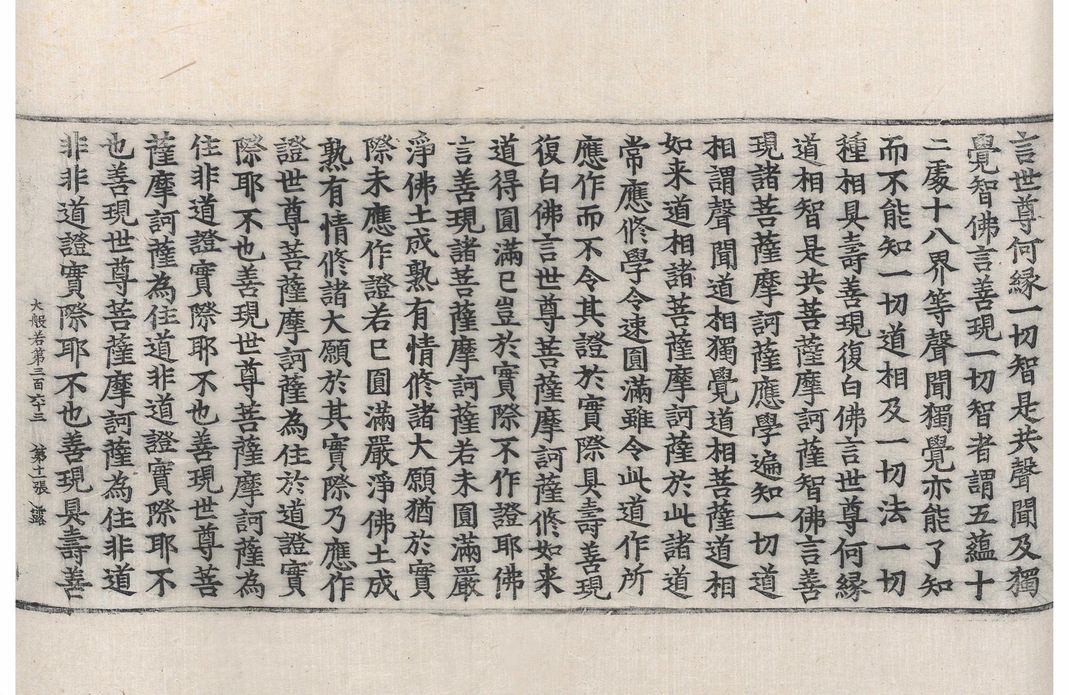 言世尊何縁一切智是共聲聞及獨
覺智佛言善現一切智者謂五蘊十
二處十八界等聲聞獨覺亦能了知
而不能知一切道相及一切法一切
種相具壽善現復白佛言世尊何縁
道相智是共菩薩摩訶薩智佛言善
現諸菩薩摩訶薩應學遍知一切道
相謂聲聞道相獨覺道相菩薩道相
如来道相諸菩薩摩訶薩於此諸道
常應修學令速圓滿雖令此道作所
應作而不令其證於實際具壽善現
復白佛言世尊菩薩摩訶薩修如来
道得圓滿已豈於實際不作證耶佛
言善現諸菩薩摩訶薩若未圓滿嚴
淨佛土成熟有情修諸大願猶於實
際未應作證若已圓滿嚴淨佛土成
熟有情修諸大願於其實際乃應作
證世尊菩薩摩訶薩為住於道證實
際耶不也善現世尊菩薩摩訶薩為
住非道證實際耶不也善現世尊菩
薩摩訶薩為住道非道證實際耶不
也善現世尊菩薩摩訶薩為住非道
非非道證實際耶不也善現具壽善
大般若第三百六十三 第十一張 露